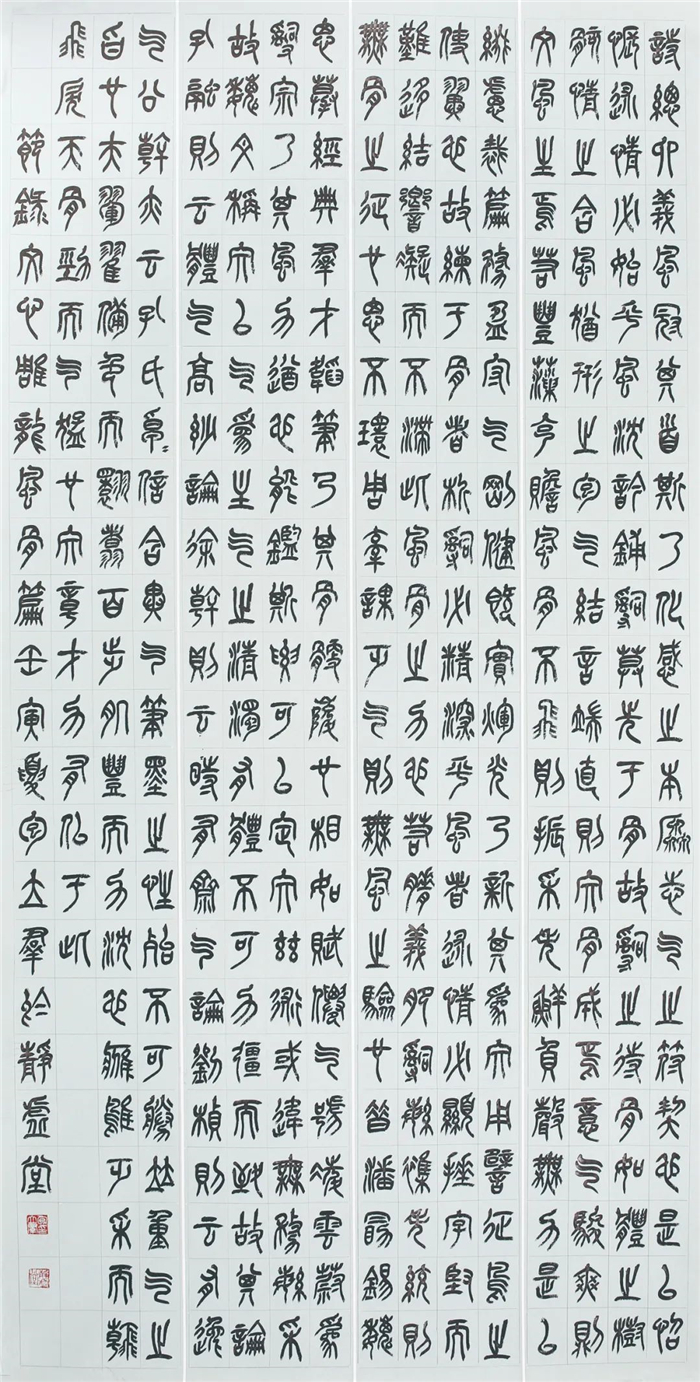 詩總六義風冠其首斯乃化感之本源志氣之符契也是以怊
悵述情必始乎風沈吟鋪辭莫先于骨故辭之待骨如體之樹
骸情之含風猶形之包氣結言端直則文骨成焉意氣駿爽則
文風生焉若豐藻克贍風骨不飛則振采失鮮負聲無力是以
綴慮裁篇務盈守氣剛健既實輝光乃新其為文用譬征鳥之
使翼也故練于骨者析辭必精深乎風者述情必顯捶字堅而
難移結響凝而不滯此風骨之力也若瘠義肥辭繁雜失統則
無骨之征也思不環周牽課乏氣則無風之驗也昔潘勖錫魏
思摹經典羣才韜筆乃其骨髓峻也相如賦僊氣號凌雲蔚為
辭宗乃其風力遒也能鑑斯要可以定文茲術或違無務繁采
故魏文稱文以氣為主氣之清濁有體不可力彊而致故其論
孔融則云體氣高妙論徐幹則云時有齊氣論劉楨則云有逸
氣公幹亦云孔氏卓卓信含異氣筆墨之性殆不可勝並重氣之
旨也夫翬翟備色而翾翥百步肌豐而力沈也鷹隼乏采而翰
飛戾天骨勁而氣猛也文章才力有似于此
節錄文心雕龍風骨篇壬寅夏立羣於靜虛堂